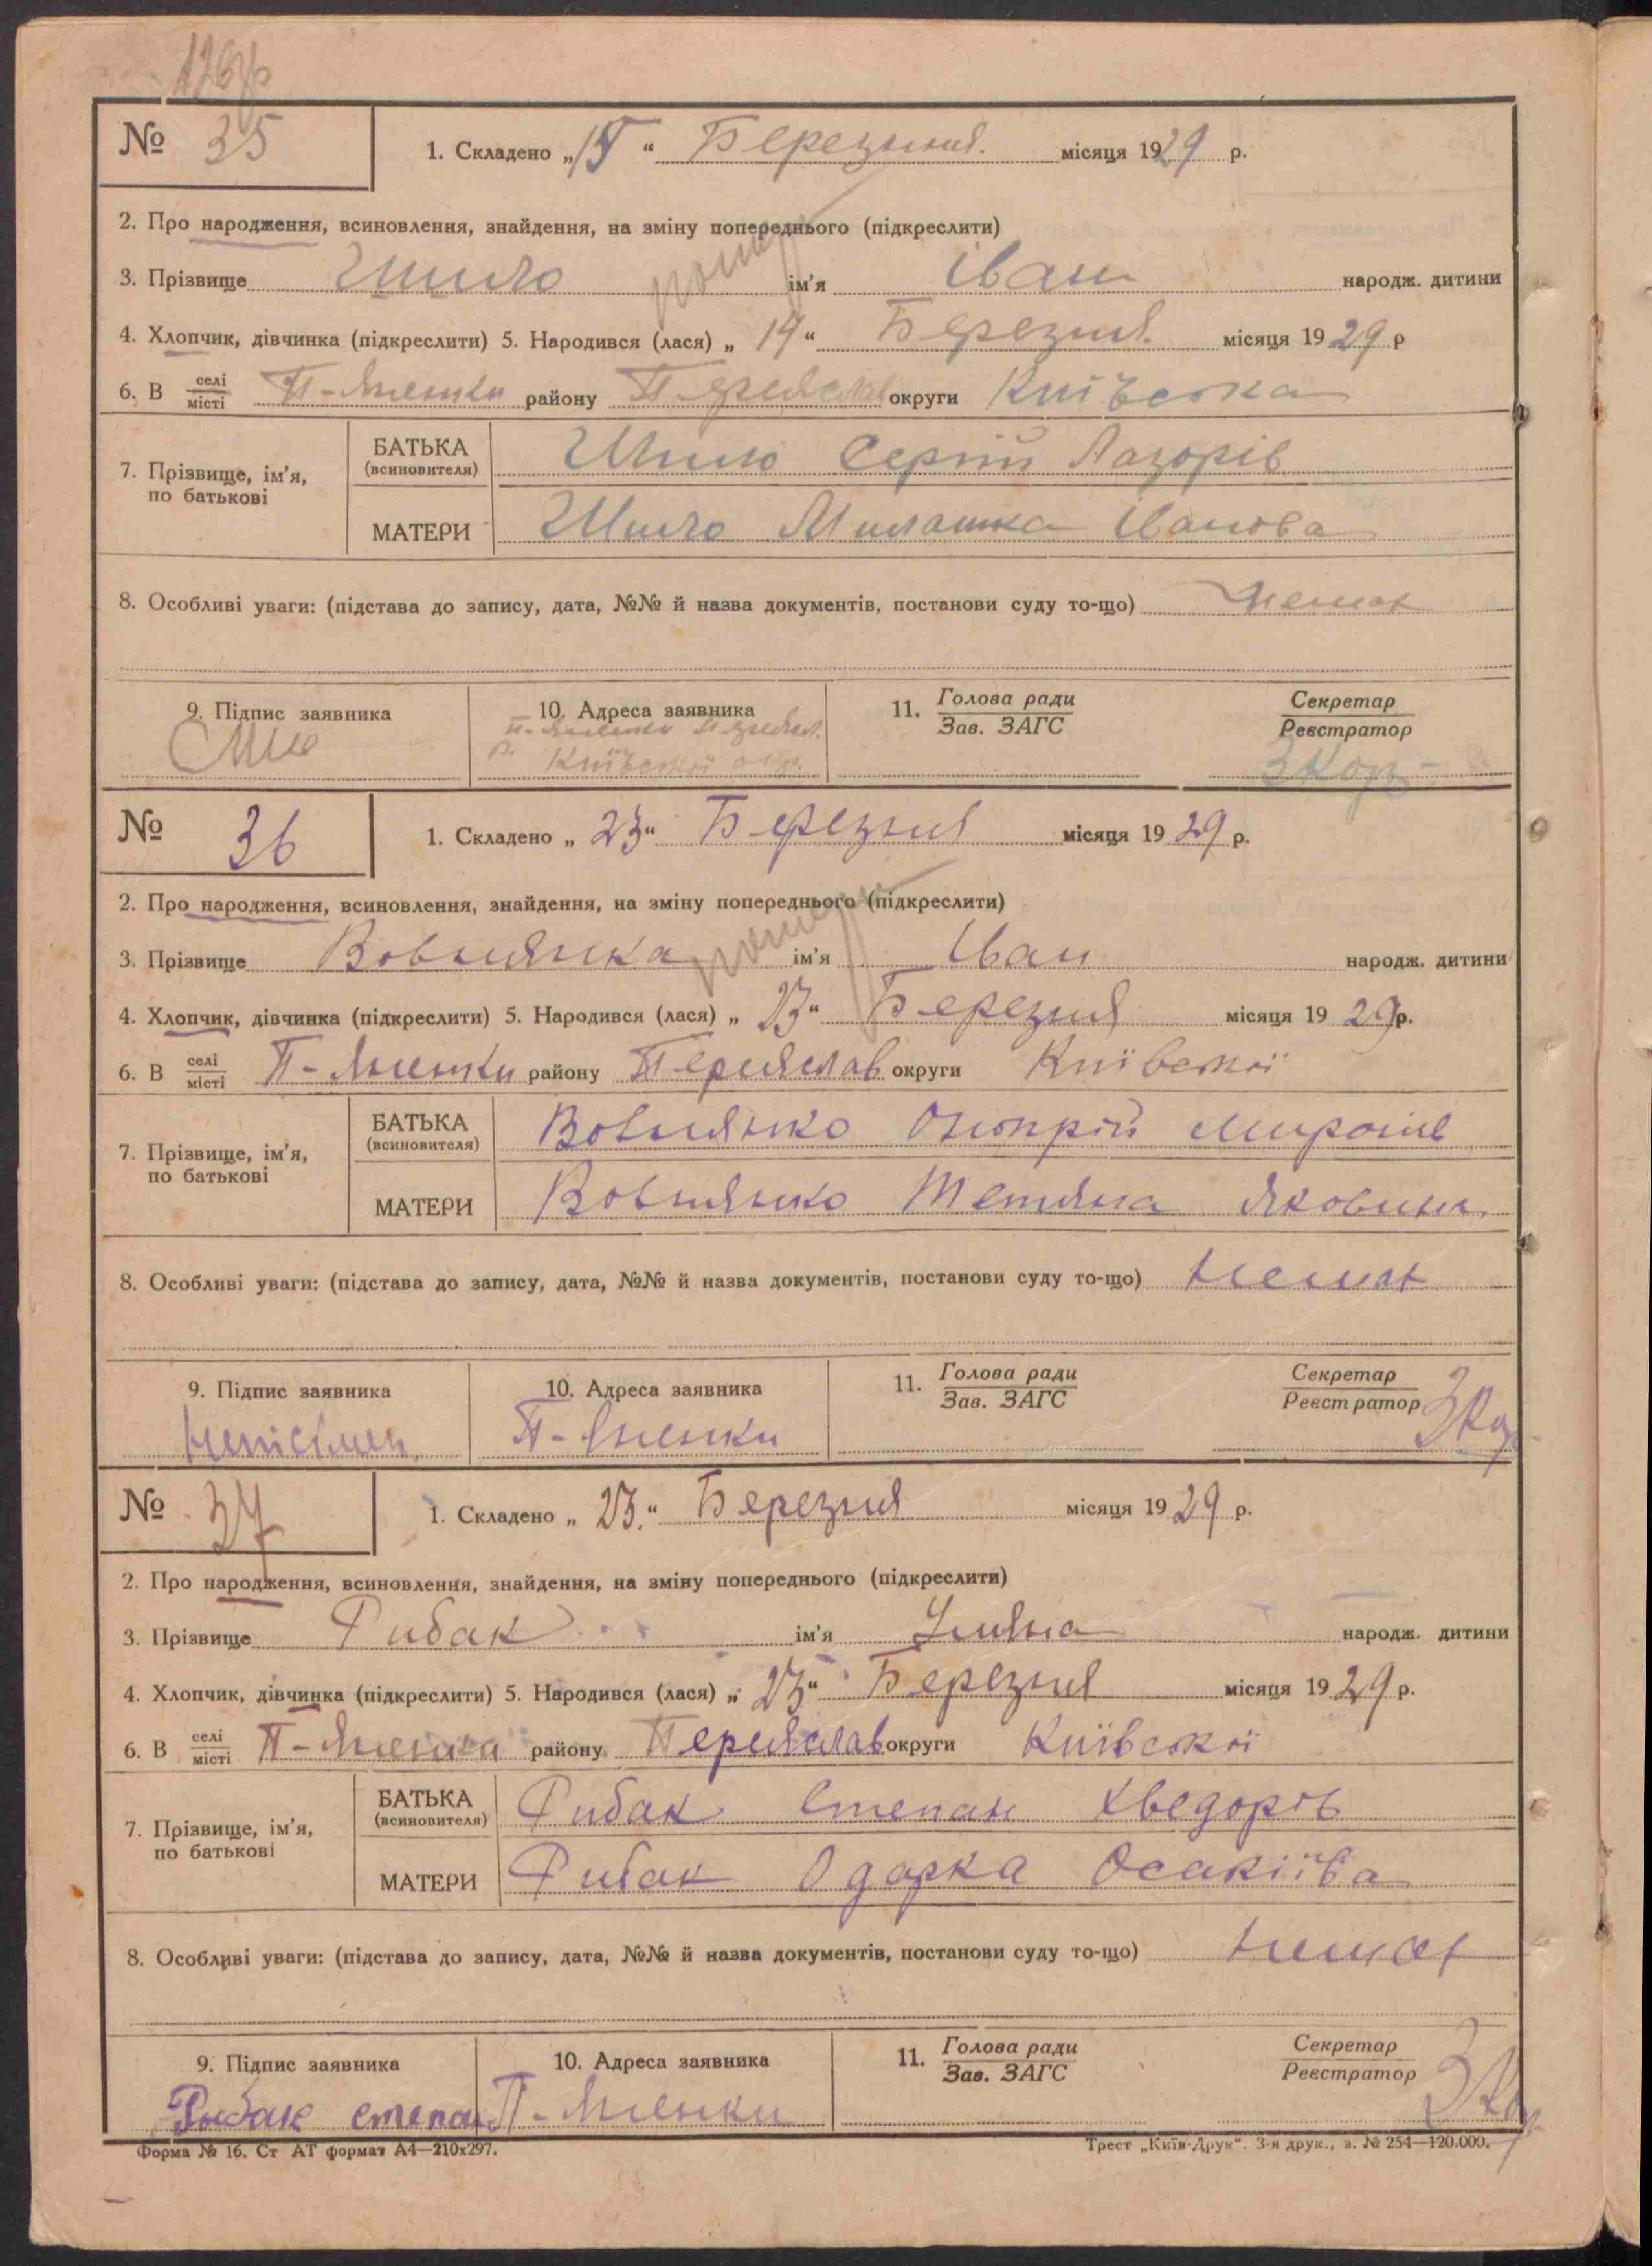 126зр
№ 35
1. Складено „15“ Березня. місяця 1929 р.
2. Про народження, всиновлення, знайдення, на зміну попереднього (підкреслити)
3. Прізвище Шило ім'я Іван народж. дитини
4. Хлопчик, дівчинка (підкреслити) 5. Народився (лася) „14“ Березня. місяця 1929 р
6. В селі/місті П-Яненки району Переяслав округи Київська
7. Прізвище, ім'я, по батькові
БАТЬКА (всиновителя) Шило Сергій Лазорів
МАТЕРИ Шило Милашка Іванова
8. Особливі уваги: (підстава до запису, дата, №№ й назва документів, постанови суду то-що) немає
9. Підпис заявника 10. Адреса заявника 11. Голова ради/Зав. ЗАГС Секретар/Реєстратор
П-Яненки Переясл.
р. Київської окр.
№ 36
1. Складено „23“ Березня місяця 1929 р.
2. Про народження, всиновлення, знайдення, на зміну попереднього (підкреслити)
3. Прізвище Вовнянка ім'я Іван народж. дитини
4. Хлопчик, дівчинка (підкреслити) 5. Народився (лася) „23“ Березня місяця 1929р.
6. В селі/місті П-Яненки району Переяслав округи Київської
7. Прізвище, ім'я, по батькові
БАТЬКА (всиновителя) Вовнянко Онопрій Миронів
МАТЕРИ Вовнянко Тетяна Яковина.
8. Особливі уваги: (підстава до запису, дата, №№ й назва документів, постанови суду то-що) немає
9. Підпис заявника 10. Адреса заявника 11. Голова ради/Зав. ЗАГС Секретар/Реєстратор
неписьмен. П-Яненки
№ 37
1. Складено „23.“ Березня місяця 1929 р.
2. Про народження, всиновлення, знайдення, на зміну попереднього (підкреслити)
3. Прізвище Рибак ім'я Уляна народж. дитини
4. Хлопчик, дівчинка (підкреслити) 5. Народився (лася) „23“ Березня місяця 1929 р.
6. В селі/місті П-Яненки району Переяслав округи Київської
7. Прізвище, ім'я, по батькові
БАТЬКА (всиновителя) Рибак Степан Хведорів
МАТЕРИ Рибак Одарка Осакіїва
8. Особливі уваги: (підстава до запису, дата, №№ й назва документів, постанови суду то-що) немає
9. Підпис заявника 10. Адреса заявника 11. Голова ради/Зав. ЗАГС Секретар/Реєстратор
Рыбак степан П-Яненки
Форма № 16. Ст АТ формат А4—210х297. Трест „Київ-Друк“. 3-я друк., з. № 254—120.000.